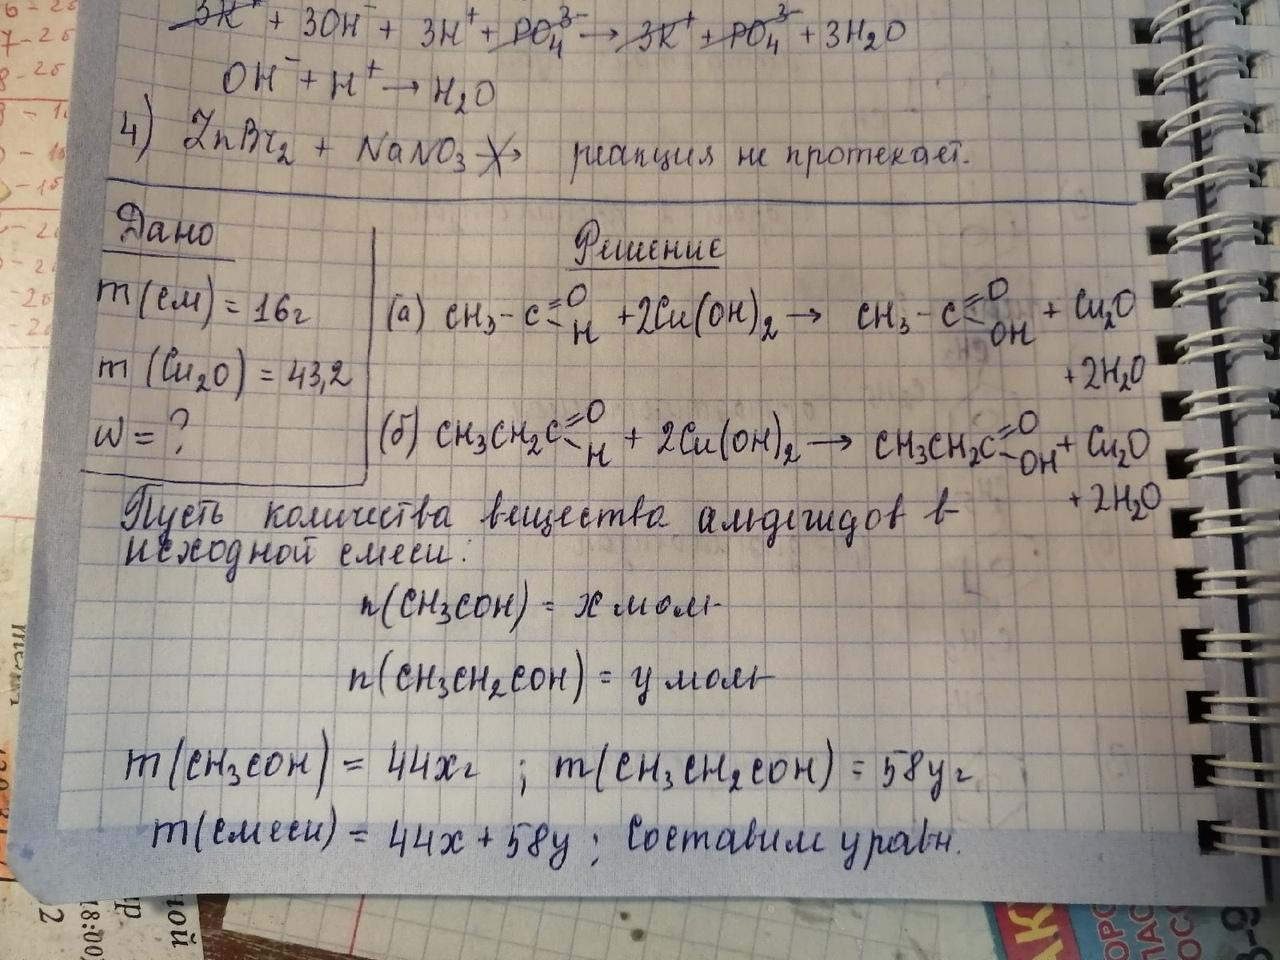 3K⁺ + 3OH⁻ + 3H⁺ + PO₄³⁻ → 3K⁺ + PO₄³⁻ + 3H₂O
OH⁻ + H⁺ → H₂O
4) ZnBr₂ + NaNO₃ ↛ реакция не протекает.
Дано
m(см) = 16г
m(Cu₂O) = 43,2
ω = ?
Решение
(а) CH₃-C=O-H + 2Cu(OH)₂ → CH₃-C=O-OH + Cu₂O
+ 2H₂O
(б) CH₃CH₂C=O-H + 2Cu(OH)₂ → CH₃CH₂C=O-OH + Cu₂O
+ 2H₂O
Пусть количества вещества альдегидов в
исходной смеси:
n(CH₃COH) = x моль
n(CH₃CH₂COH) = y моль
m(CH₃COH) = 44xг ; m(CH₃CH₂COH) = 58yг
m(смеси) = 44x + 58y ; Составим уравн.
18:00
2